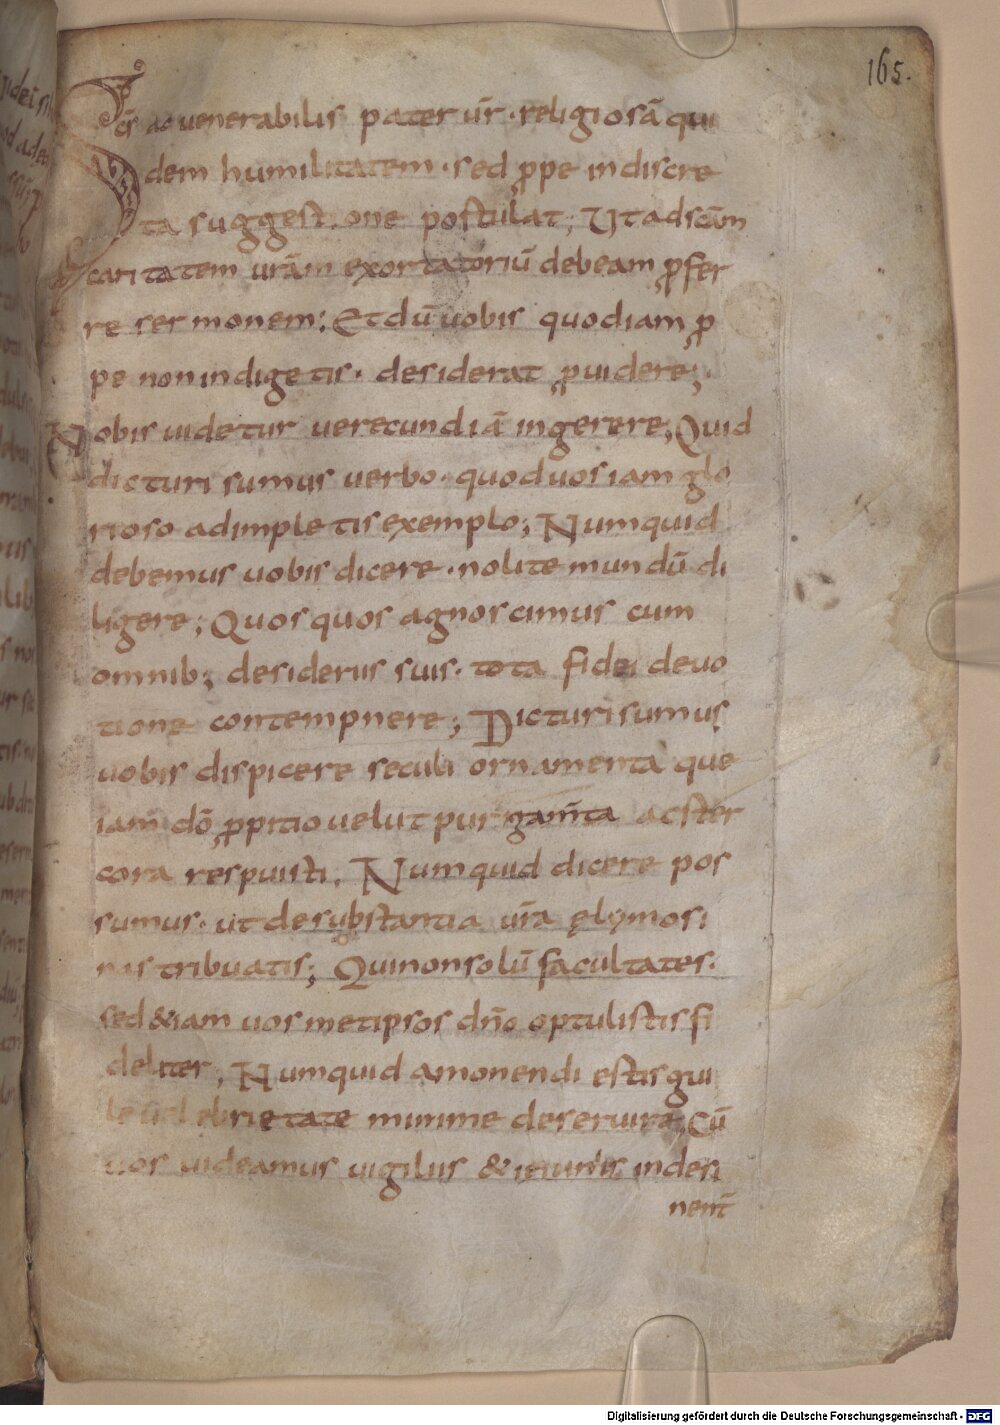 165.
Scs ac venerabilis pater ur̄ · religiosā qui
dem humilitatem · sed ꝓpe indiscre
ta suggestione postulat; Ut ad scām
caritatem urām exortatoriū debeam ꝓfer
re sermonem; Et dū uobis quod iam ꝓ
pe non indigetis · desiderat ꝓuidere;
Nobis uidetur verecundiā ingerere; Quid
dicturi sumus verbo · quod uos iam glo
rioso adimpletis exemplo; Numquid
debemus uobis dicere · nolite mundū di
ligere; Quos quos agnoscimus cum
omnib; desideriis suis · tota fidei deuo
tione contempnere; Dicturi sumus
uobis dispicere seculi ornamenta que
iam dō ꝓpitio velut purgam̄ta ac ster
cora respuisti; Numquid dicere pos
sumus · ut de substantia ur̄a elymosi
nas tribuatis; Qui non solū facultates ·
sed &iam uos metipsos dn̄o optulistis fi
deliter; Numquid amonendi estis gui
le uel ebrietate minime deseruire; Cū
uos uideamus uigiliis & ieiuniis indesi
nent̄
Digitalisierung gefördert durch die Deutsche Forschungsgemeinschaft - DFG